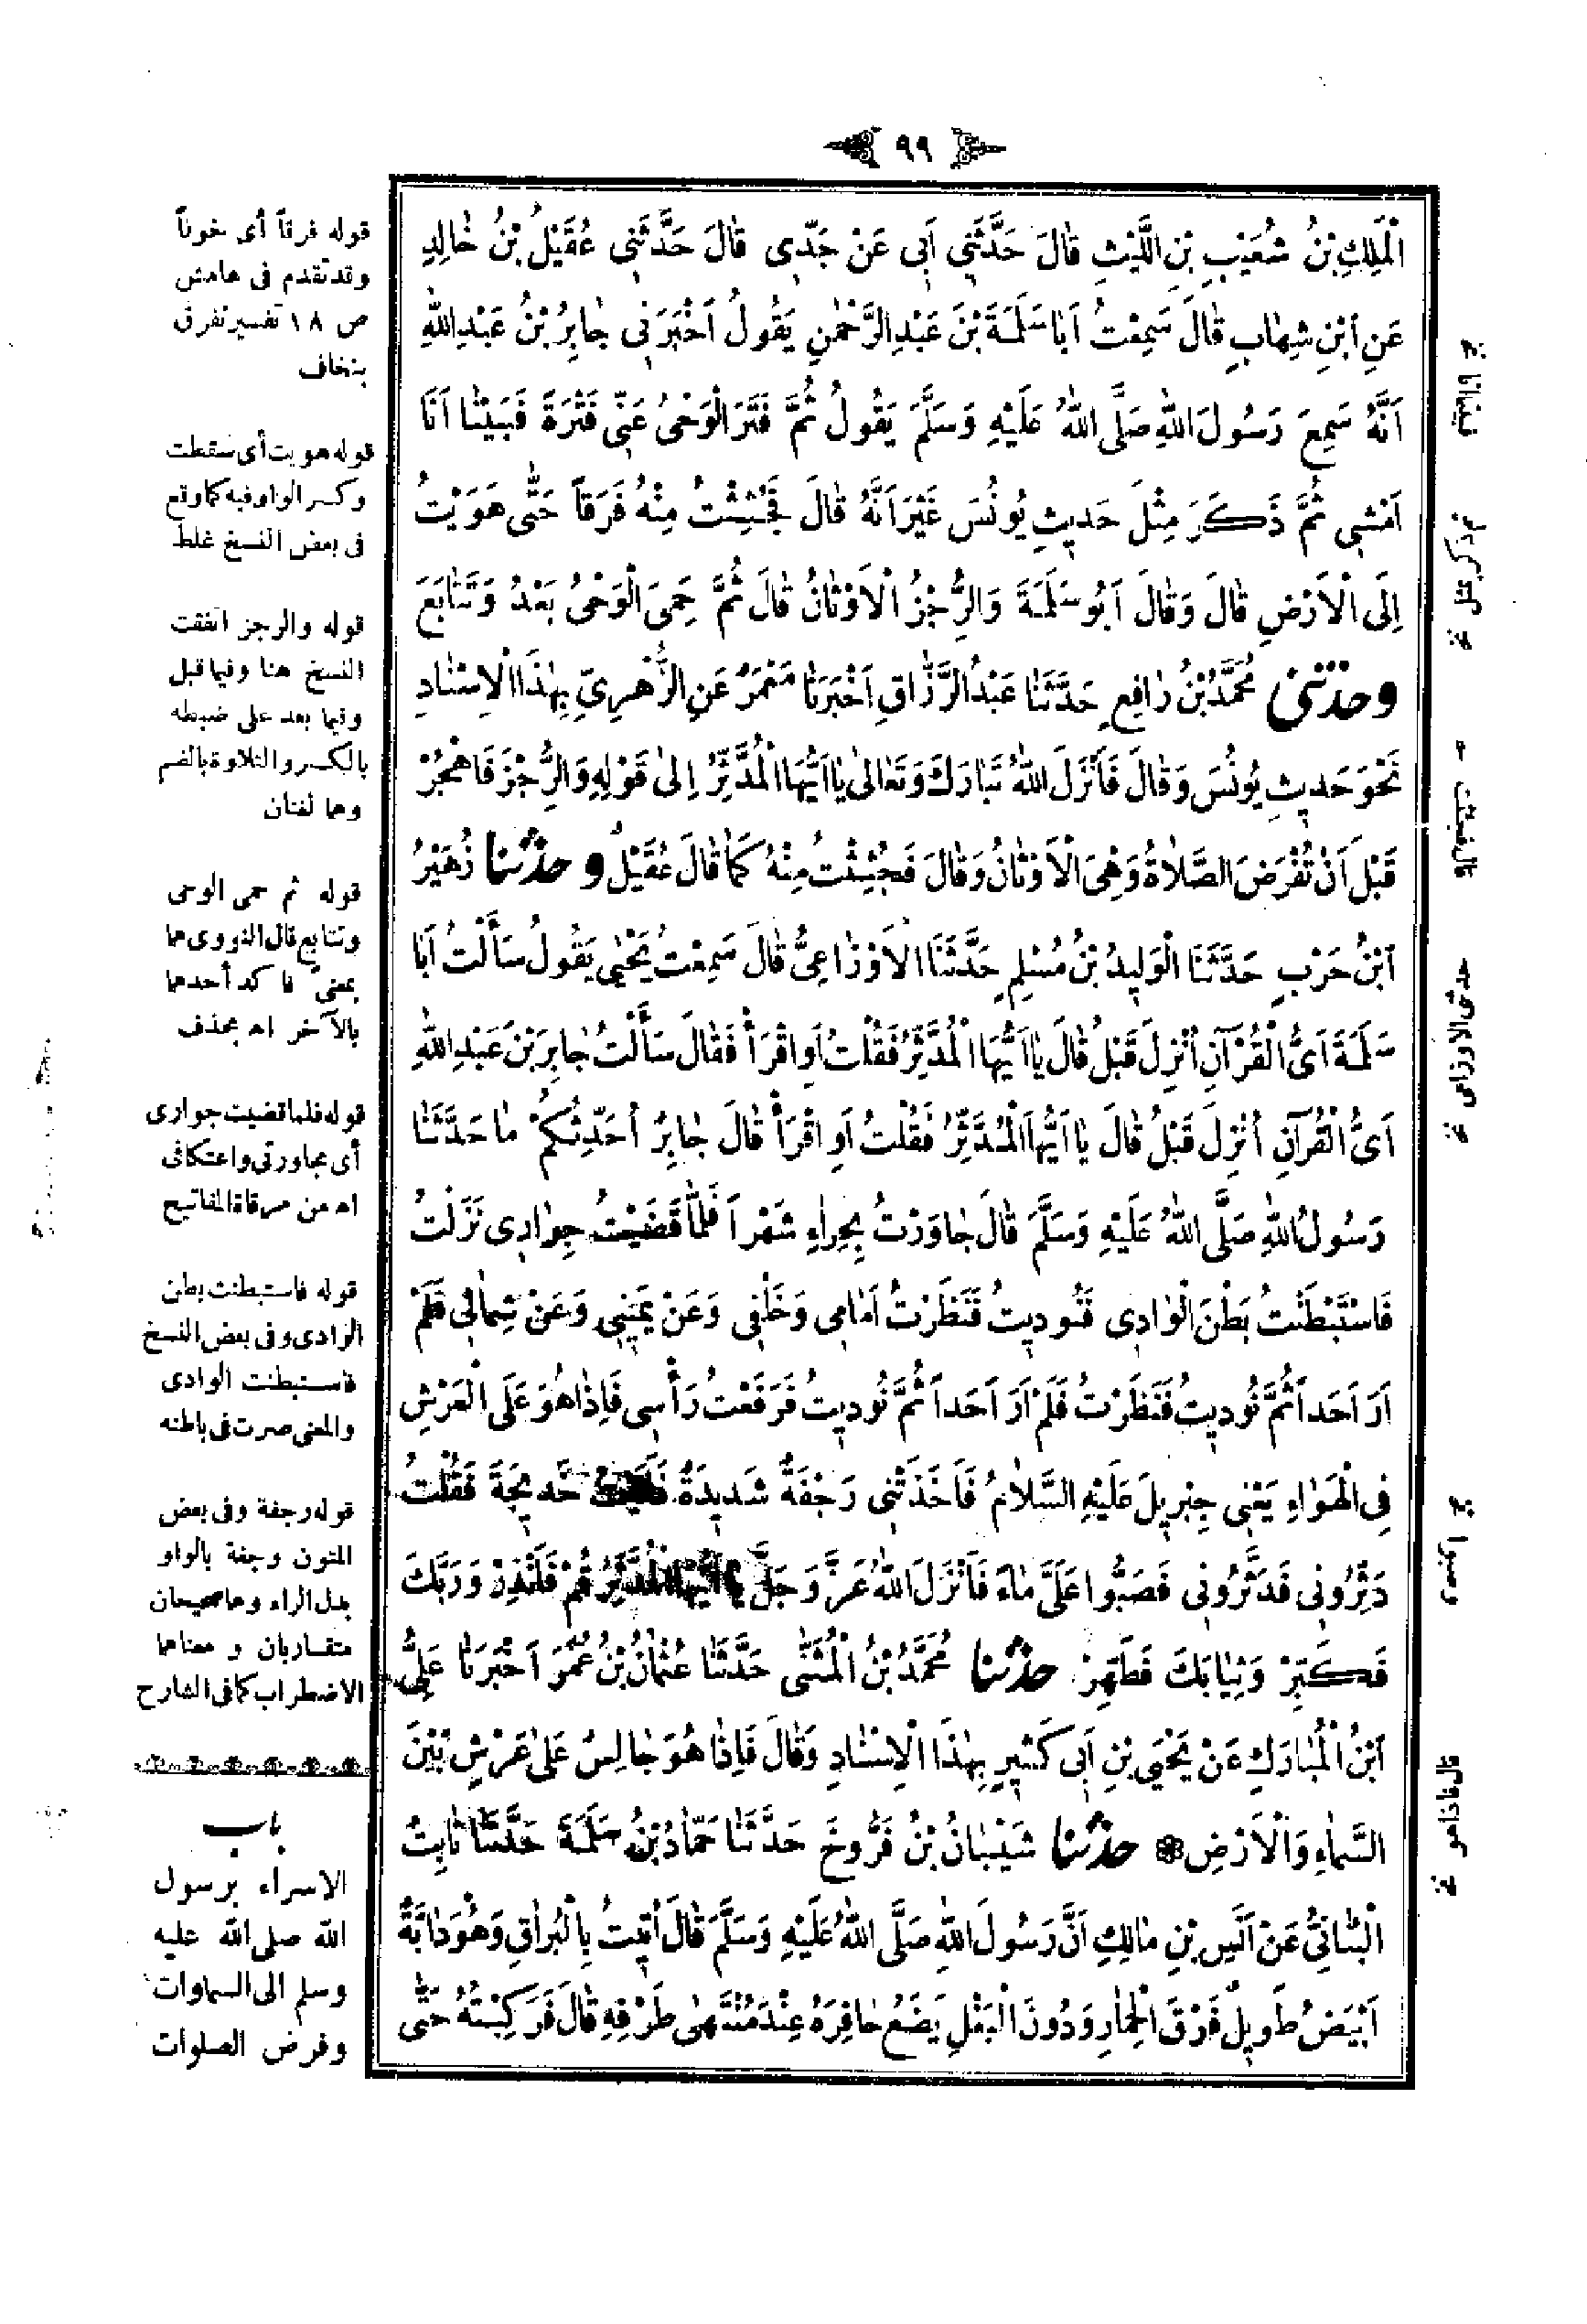 ٩٩
الْمَلِكِ بْنُ شُعَيْبِ بْنِ اللَّيْثِ قَالَ حَدَّثَنِي أَبِي عَنْ جَدِّي قَالَ حَدَّثَنِي عُقَيْلُ بْنُ خَالِدٍ
عَنِ ابْنِ شِهَابٍ قَالَ سَمِعْتُ أَبَا سَلَمَةَ بْنَ عَبْدِ الرَّحْمٰنِ يَقُولُ أَخْبَرَنِي جَابِرُ بْنُ عَبْدِ اللهِ
أَنَّهُ سَمِعَ رَسُولَ اللهِ صَلَّى اللهُ عَلَيْهِ وَسَلَّمَ يَقُولُ ثُمَّ فَتَرَ الْوَحْيُ عَنِّي فَتْرَةً فَبَيْنَا أَنَا
أَمْشِي ثُمَّ ذَكَرَ مِثْلَ حَدِيثِ يُونُسَ غَيْرَ أَنَّهُ قَالَ فَجُثِثْتُ مِنْهُ فَرَقاً حَتَّى هَوَيْتُ
إِلَى الْأَرْضِ قَالَ وَقَالَ أَبُو سَلَمَةَ وَالرِّجْزُ الْأَوْثَانُ قَالَ ثُمَّ حَمِيَ الْوَحْيُ بَعْدُ وَتَتَابَعَ
وحدثنى مُحَمَّدُ بْنُ رَافِعٍ حَدَّثَنَا عَبْدُ الرَّزَّاقِ أَخْبَرَنَا مَعْمَرٌ عَنِ الزُّهْرِيِّ بِهٰذَا الْإِسْنَادِ
نَحْوَ حَدِيثِ يُونُسَ وَقَالَ فَأَنْزَلَ اللهُ تَبَارَكَ وَتَعَالَى يَا أَيُّهَا الْمُدَّثِّرُ إِلَى قَوْلِهِ وَالرِّجْزَ فَاهْجُرْ
قَبْلَ أَنْ تُفْرَضَ الصَّلَاةُ وَهِيَ الْأَوْثَانُ وَقَالَ فَجُثِثْتُ مِنْهُ كَمَا قَالَ عُقَيْلٌ وحدثنا زُهَيْرُ
ابْنُ حَرْبٍ حَدَّثَنَا الْوَلِيدُ بْنُ مُسْلِمٍ حَدَّثَنَا الْأَوْزَاعِيُّ قَالَ سَمِعْتُ يَحْيٰى يَقُولُ سَأَلْتُ أَبَا
سَلَمَةَ أَيُّ الْقُرْآنِ أُنْزِلَ قَبْلُ قَالَ يَا أَيُّهَا الْمُدَّثِّرُ فَقُلْتُ أَوِ اقْرَأْ فَقَالَ سَأَلْتُ جَابِرَ بْنَ عَبْدِ اللهِ
أَيُّ الْقُرْآنِ أُنْزِلَ قَبْلُ قَالَ يَا أَيُّهَا الْمُدَّثِّرُ فَقُلْتُ أَوِ اقْرَأْ قَالَ جَابِرٌ أُحَدِّثُكُمْ مَا حَدَّثَنَا
رَسُولُ اللهِ صَلَّى اللهُ عَلَيْهِ وَسَلَّمَ قَالَ جَاوَرْتُ بِحِرَاءٍ شَهْراً فَلَمَّا قَضَيْتُ جِوَارِي نَزَلْتُ
فَاسْتَبْطَنْتُ بَطْنَ الْوَادِي فَنُودِيتُ فَنَظَرْتُ أَمَامِي وَخَلْفِي وَعَنْ يَمِينِي وَعَنْ شِمَالِي فَلَمْ
أَرَ أَحَداً ثُمَّ نُودِيتُ فَنَظَرْتُ فَلَمْ أَرَ أَحَداً ثُمَّ نُودِيتُ فَرَفَعْتُ رَأْسِي فَإِذَا هُوَ عَلَى الْعَرْشِ
فِي الْهَوَاءِ يَعْنِي جِبْرِيلَ عَلَيْهِ السَّلَامُ فَأَخَذَتْنِي رَجْفَةٌ شَدِيدَةٌ خَدِيجَةَ فَقُلْتُ
دَثِّرُونِي فَدَثَّرُونِي فَصَبُّوا عَلَيَّ مَاءً فَأَنْزَلَ اللهُ عَزَّ وَجَلَّ يَا أَيُّهَا الْمُدَّثِّرُ قُمْ فَأَنْذِرْ وَرَبَّكَ
فَكَبِّرْ وَثِيَابَكَ فَطَهِّرْ حدثنا مُحَمَّدُ بْنُ الْمُثَنَّى حَدَّثَنَا عُثْمَانُ بْنُ عُمَرَ أَخْبَرَنَا عَلِيُّ
ابْنُ الْمُبَارَكِ عَنْ يَحْيَى بْنِ أَبِي كَثِيرٍ بِهٰذَا الْإِسْنَادِ وَقَالَ فَإِذَا هُوَ جَالِسٌ عَلَى عَرْشٍ بَيْنَ
السَّمَاءِ وَالْأَرْضِ ❁ حدثنا شَيْبَانُ بْنُ فَرُّوخَ حَدَّثَنَا حَمَّادُ بْنُ سَلَمَةَ حَدَّثَنَا ثَابِتٌ
الْبُنَانِيُّ عَنْ أَنَسِ بْنِ مَالِكٍ أَنَّ رَسُولَ اللهِ صَلَّى اللهُ عَلَيْهِ وَسَلَّمَ قَالَ أُتِيتُ بِالْبُرَاقِ وَهُوَ دَابَّةٌ
أَبْيَضُ طَوِيلٌ فَوْقَ الْحِمَارِ وَدُونَ الْبَغْلِ يَضَعُ حَافِرَهُ عِنْدَ مُنْتَهٰى طَرْفِهِ قَالَ فَرَكِبْتُهُ حَتَّى
قوله فرقاً أى خوفاً
وقد تقدم فى هامش
ص ١٨ تفسير تفرق
بتخاف
قوله هويت أى سقطت
وكسر الواو فيه كما وقع
فى بعض النسخ غلط
قوله والرجز اتفقت
النسخ هنا وفيما قبل
وفيما بعد على ضبطه
بالكسر والتلاوة بالضم
وهما لغتان
قوله ثم حمى الوحى
وتتابع قال النووى هما
بمعنى فأكد أحدهما
بالآخر اه بحذف
قوله فلما قضيت جوارى
أى مجاورتى واعتكافى
اه من مرقاة المفاتيح
قوله فاستبطنت بطن
الوادى وفى بعض النسخ
فاستبطنت الوادى
والمعنى صرت فى باطنه
قوله رجفة وفى بعض
المتون وجفة بالواو
بدل الراء وهما صحيحان
متقاربان و معناهما
الاضطراب كما فى الشارح
باب
الاسراء برسول
الله صلى الله عليه
وسلم الى السماوات
وفرض الصلوات
فبينا أنا نخ
ثم ذكر بمثل نخ
قال فجثثت
حدثنى الاوزاعى نخ
قال فاذا هو نخ